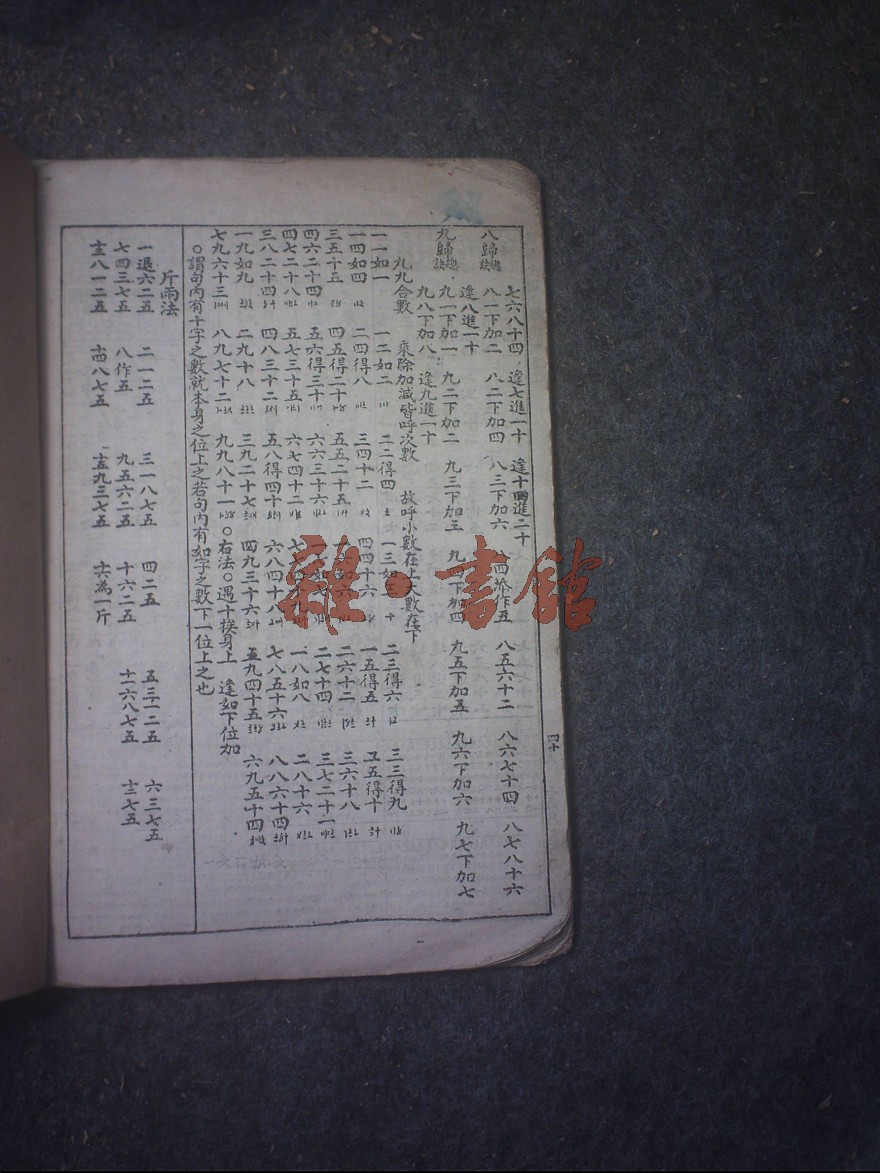 七六八十四 逢七進一十 逢十四進二十
八歸總訣 八一下加二 八二下加四 八三下加六 八四添作五 八五六十二 八六七十四 八七八十六
逢八進一十
九歸總訣 九一下加一 九二下加二 九三下加三 九四下加四 九五下加五 九六下加六 九七下加七
九八下加八 逢九進一十
九九合數 乘除加減皆呼次數 故呼小數在上大數在下
一一如一 一二如二 二二得四 一三如三 二三得六 三三得九
一四如四 二四得八 三四十二 四四十六 一五得五 二五得十
三五十五 四五得二十 五五二十五 一六如六 二六十二 三六十八
四六二十四 五六得三十 六六三十六 一七如七 二七十四 三七二十一
四七二十八 五七三十五 六七四十二 七七四十九 一八如八 二八十六
三八二十四 四八三十二 五八得四十 六八四十八 七八五十六 八八六十四
一九如九 二九十八 三九二十七 四九三十六 五九四十五 六九五十四
七九六十三 八九七十二 九九八十一 ○右法○遇十挨身上 逢如下位加
○謂句內有十字之數就本身之位上之若句內有如字之數下一位上之也
斤兩法
一退六二五 二一二五 三一八七五 四二五 五三一二五 六三七五
七四三七五 八作五 九五六二五 十六二五 十一六八七五 十二七五
十三八一二五 十四八七五 十五九三七五 十六為一斤
四十
雜·書館